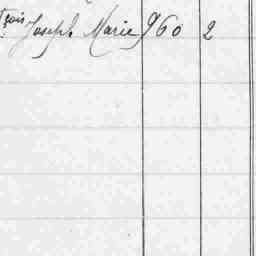 çois Joseph Marie 960 2